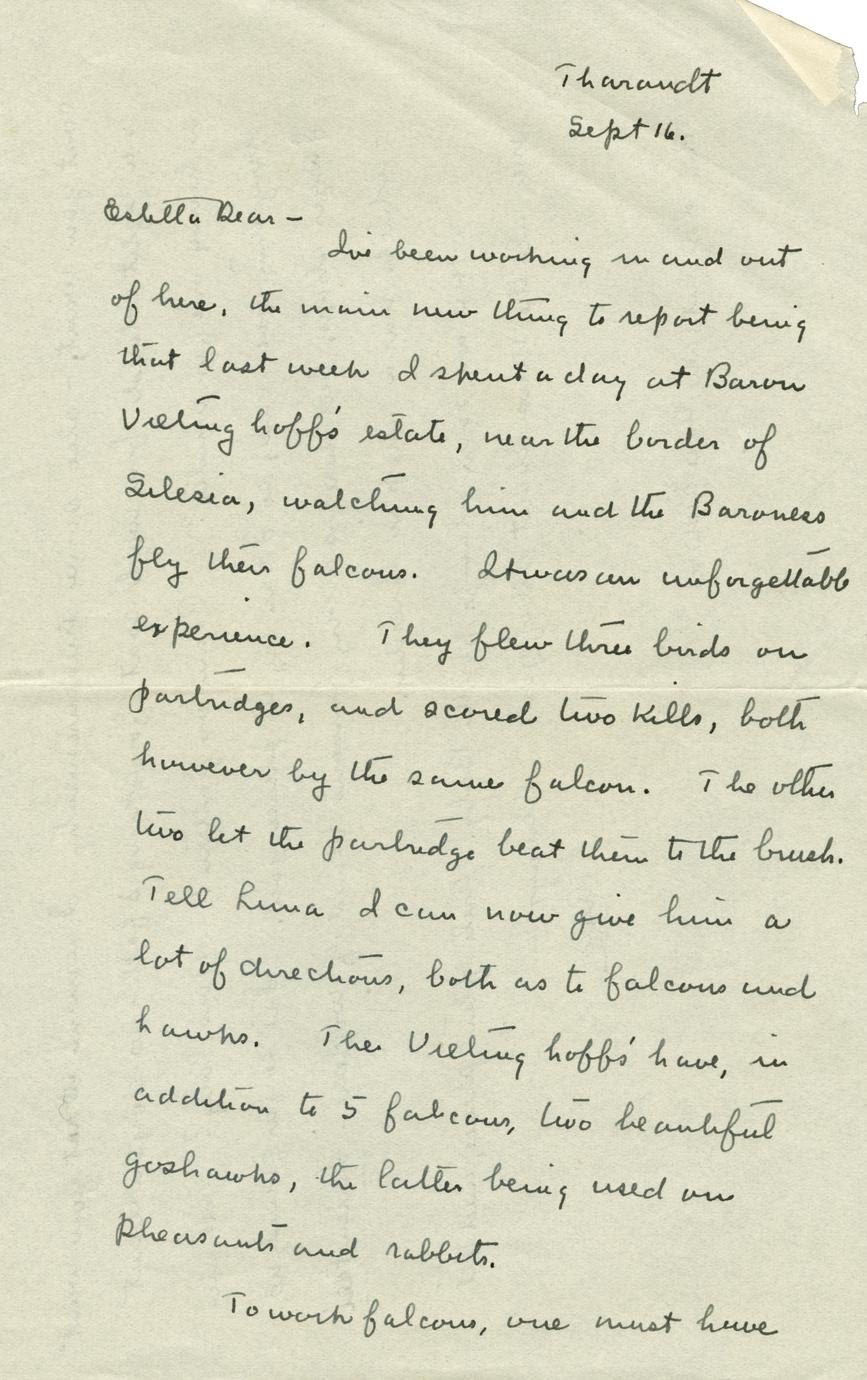 Tharandt
Sept 16.
Estella Dear –
I've been working in and out
of here, the main new thing to report being
that last week I spent a day at Baron
Vietinghoff's estate, near the border of
Silesia, watching him and the Baroness
fly their falcons. It was an unforgettable
experience. They flew three birds on
partridges, and scored two kills, both
however by the same falcon. The other
two let the partridge beat them to the brush.
Tell Luna I can now give him a
lot of directions, both as to falcons and
hawks. The Vietinghoffs' have, in
addition to 5 falcons, two beautiful
goshawks, the latter being used on
pheasants and rabbits.
To work falcons, one must have